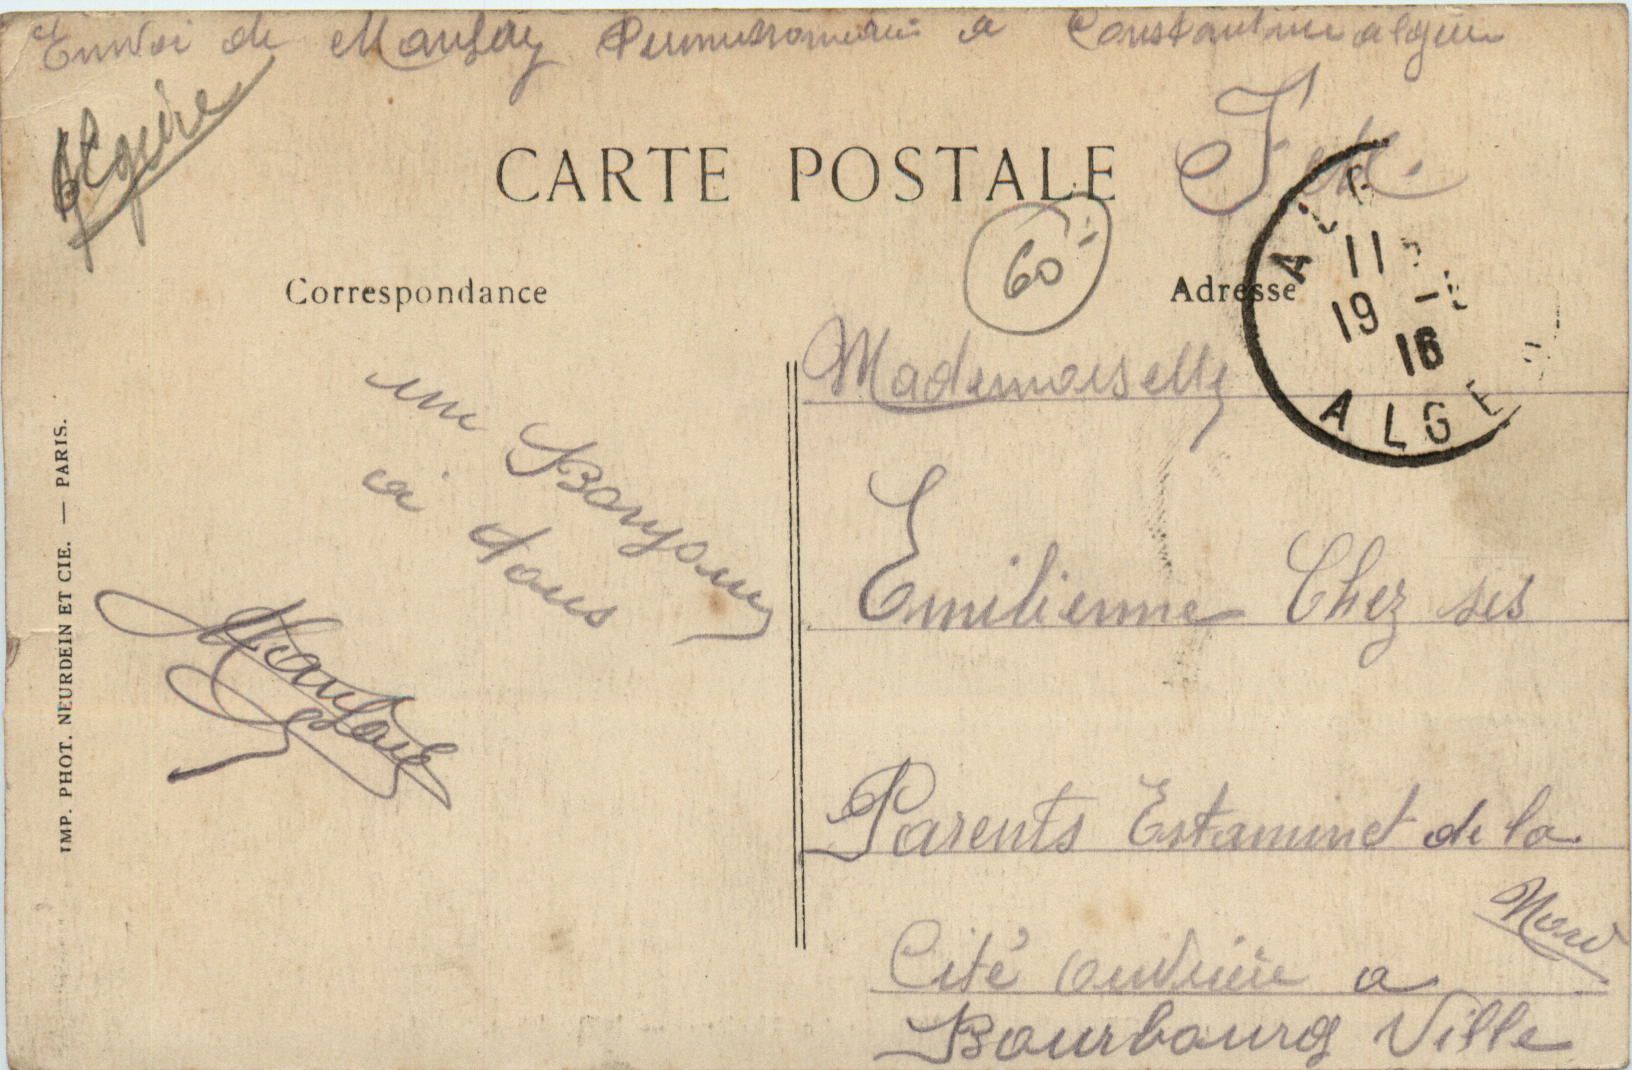 Envoi de Maufay Permissionnaire a Constantine algerie
Algerie
F.M.
CARTE POSTALE
60-
Correspondance
Adresse
ALG
11
19 -
16
ALGER
un Bonjour
a tous
Mademoiselle
Emilienne Chez ses
Parents Estaminet de la
Cité ouvriere a
Nord
Bourbourg Ville
IMP. PHOT. NEURDEIN ET CIE. — PARIS.